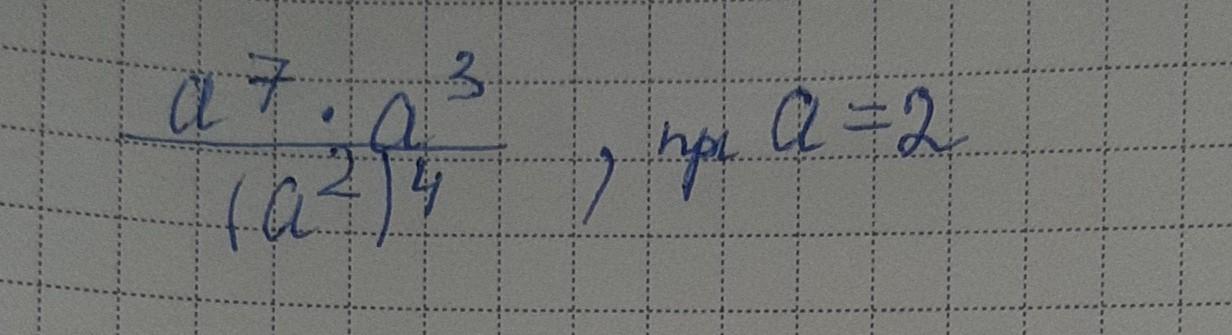 a⁷ · a³ / (a²)⁴ , при a = 2